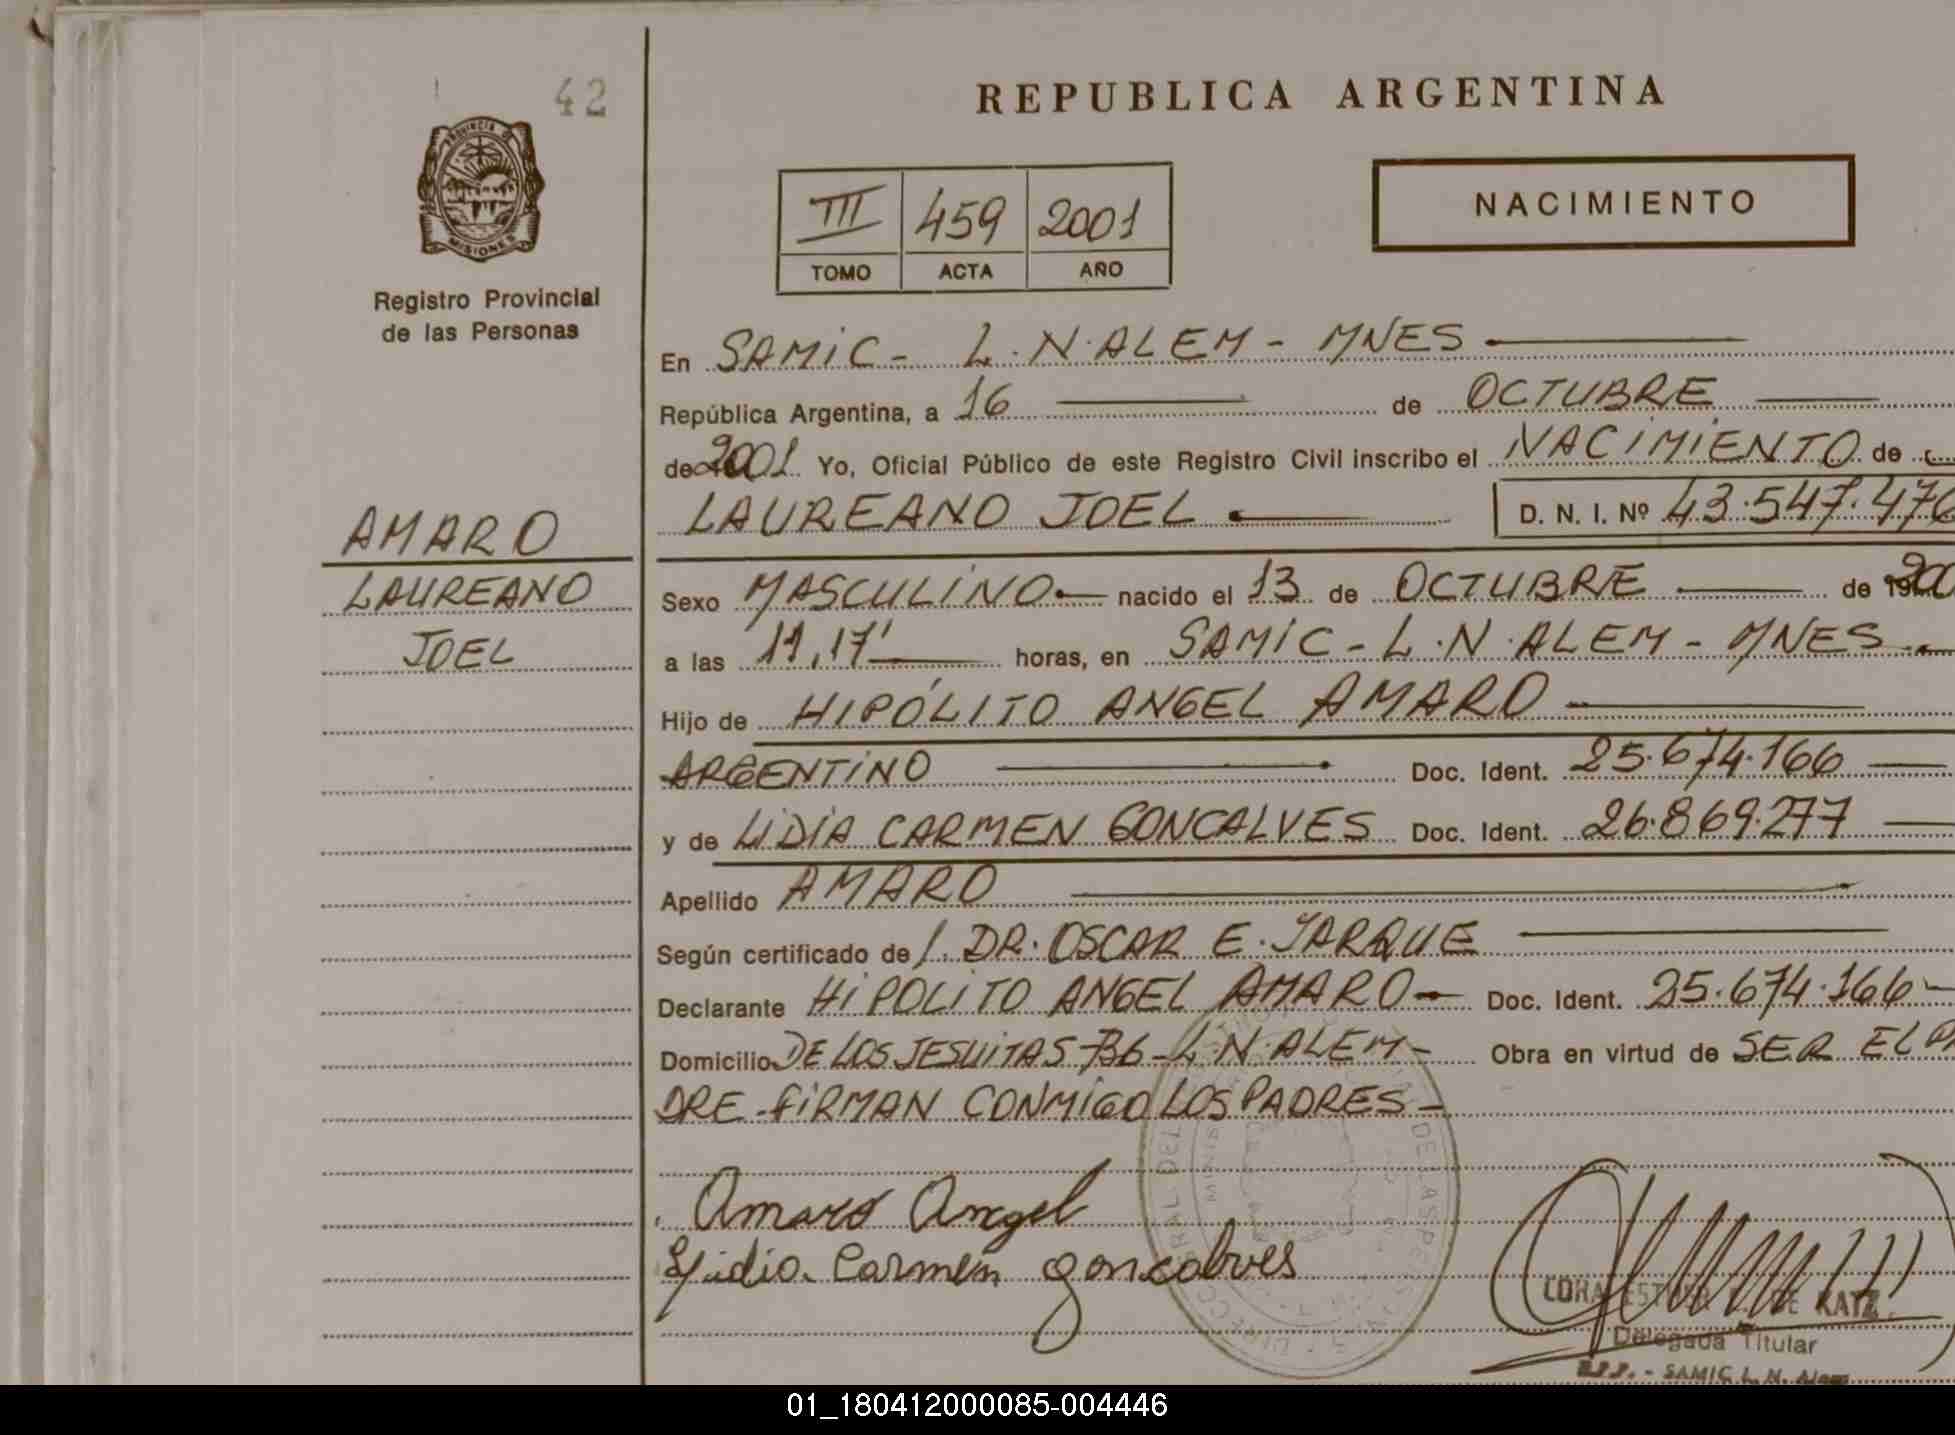 42
REPUBLICA ARGENTINA
PROVINCIA DE
MISIONES
Registro Provincial
de las Personas
III 459 2001
TOMO ACTA AÑO
NACIMIENTO
En SAMIC - L.N.ALEM - MNES
República Argentina, a 16 de OCTUBRE
de 2001. Yo, Oficial Público de este Registro Civil inscribo el NACIMIENTO de
LAUREANO JOEL D. N. I. Nº 43.547.476
AMARO
LAUREANO
JOEL
Sexo MASCULINO nacido el 13 de OCTUBRE de
a las 11,17' horas, en SAMIC - L.N.ALEM - MNES
Hijo de HIPÓLITO ANGEL AMARO
ARGENTINO Doc. Ident. 25.674.166
y de LIDIA CARMEN GONCALVES Doc. Ident. 26.869.277
Apellido AMARO
Según certificado de DR. OSCAR E. JARQUE
Declarante HIPOLITO ANGEL AMARO Doc. Ident. 25.674.166
Domicilio DE LOS JESUITAS 736 - L.N.ALEM - Obra en virtud de SER EL PA
DRE - FIRMAN CONMIGO LOS PADRES -
Amaro Angel
Lidia Carmen Goncalves
DE KATZ
Delegada Titular
R.P.P. - SAMIC L. N. Alem
01_180412000085-004446